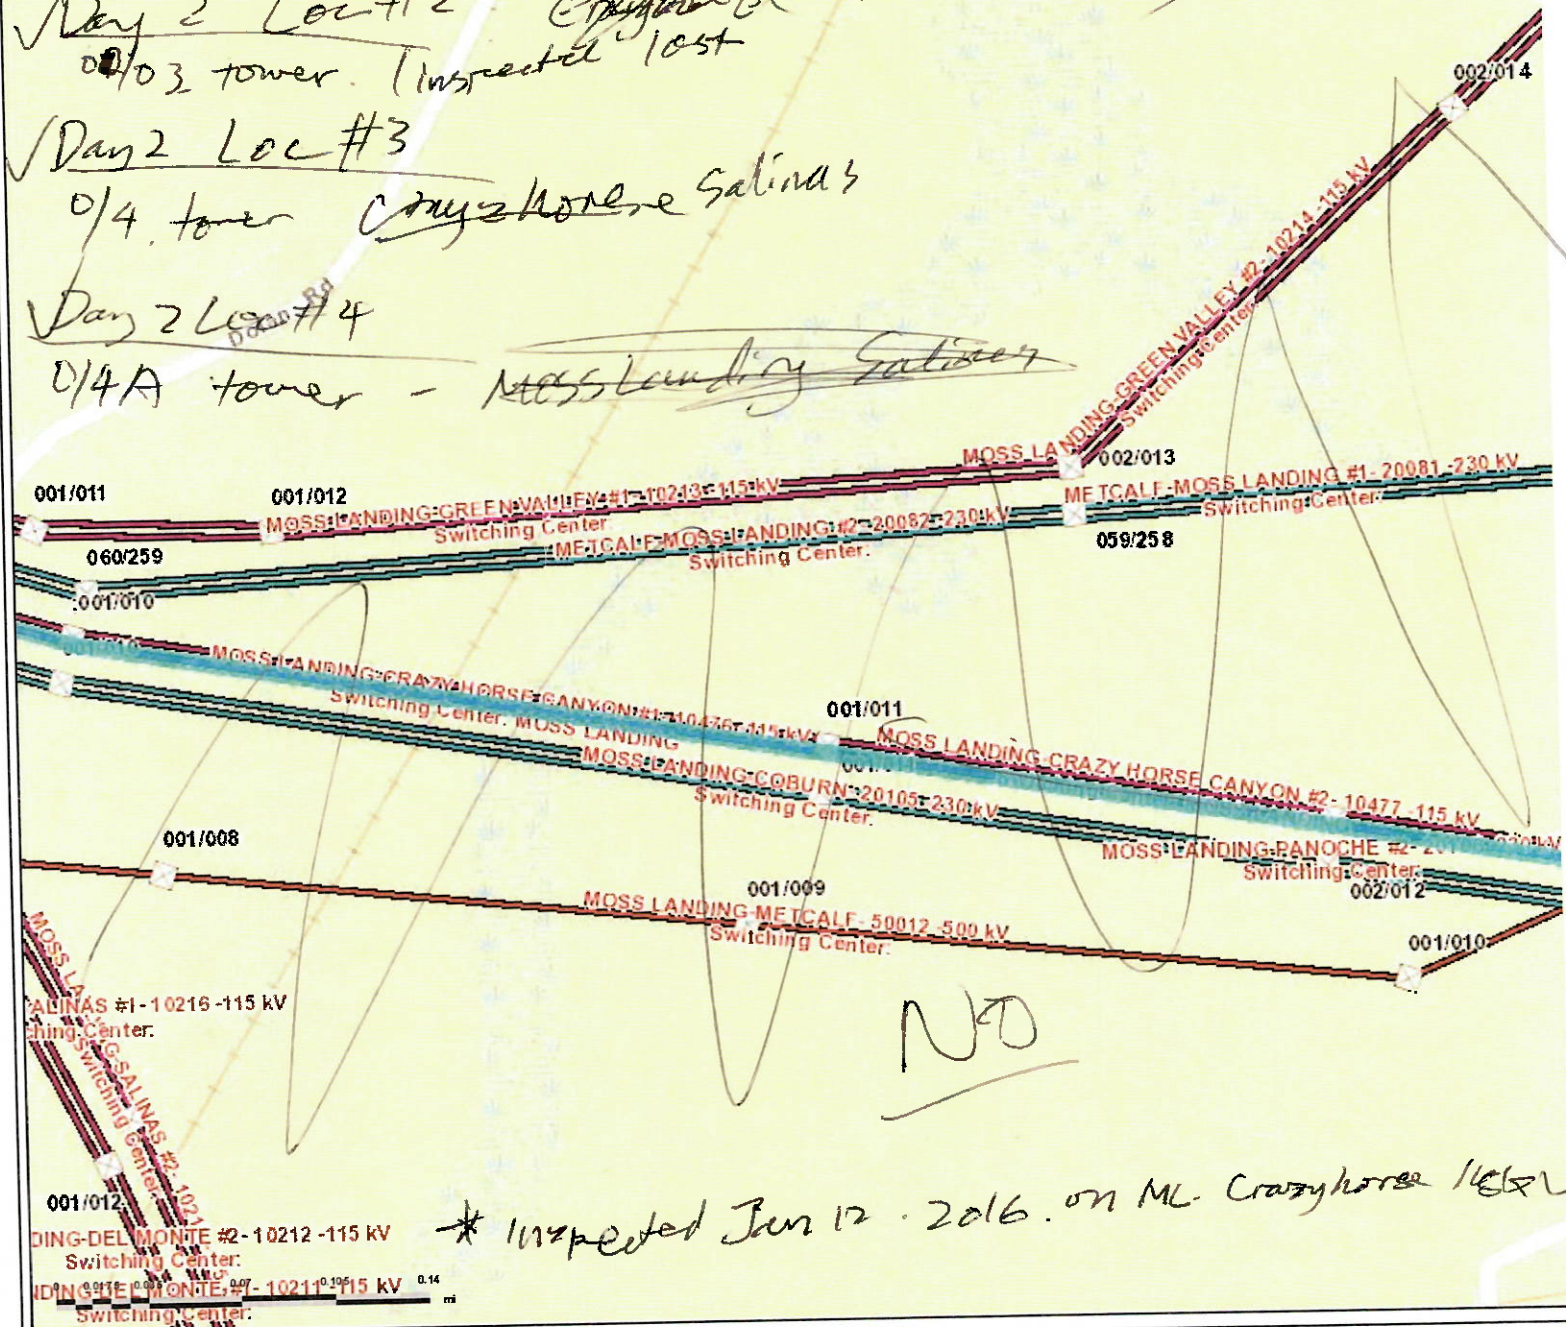 Day 2 Loc #2
03 tower. (inspected last
Day 2 Loc #3
0/4 tower Crazyhorse Salinas
Day 2 Loc #4
Dolan Rd
0/4A tower - Moss Landing Salinas
002/014
MOSS LANDING-GREEN VALLEY #2- 10214 -115 kV
Switching Center:
002/013
001/011
001/012
MOSS LANDING-GREEN VALLEY #1- 10213 -115 kV
Switching Center:
METCALF-MOSS LANDING #1- 20081 -230 kV
Switching Center:
060/259
METCALF-MOSS LANDING #2- 20082 -230 kV
Switching Center:
059/258
001/010
001/010
MOSS LANDING-CRAZY HORSE CANYON #1- 10476 -115 kV
Switching Center: MOSS LANDING
001/011
001/011
MOSS LANDING-CRAZY HORSE CANYON #2- 10477 -115 kV
MOSS LANDING-COBURN- 20105 -230 kV
Switching Center:
MOSS LANDING-PANOCHE #2-
Switching Center:
002/012
001/008
001/009
MOSS LANDING-METCALF- 50012 -500 kV
Switching Center:
001/010
MOSS LANDING-SALINAS #2- 1021
Switching Center:
ALINAS #1- 10216 -115 kV
ching Center:
NO
001/012
DING-DEL MONTE #2- 10212 -115 kV
Switching Center:
* Inspected Jan 12. 2016. on ML. Crazyhorse
NDING-DEL MONTE #1- 10211 -115 kV
0.07 0.105 0.14
mi
Switching Center: